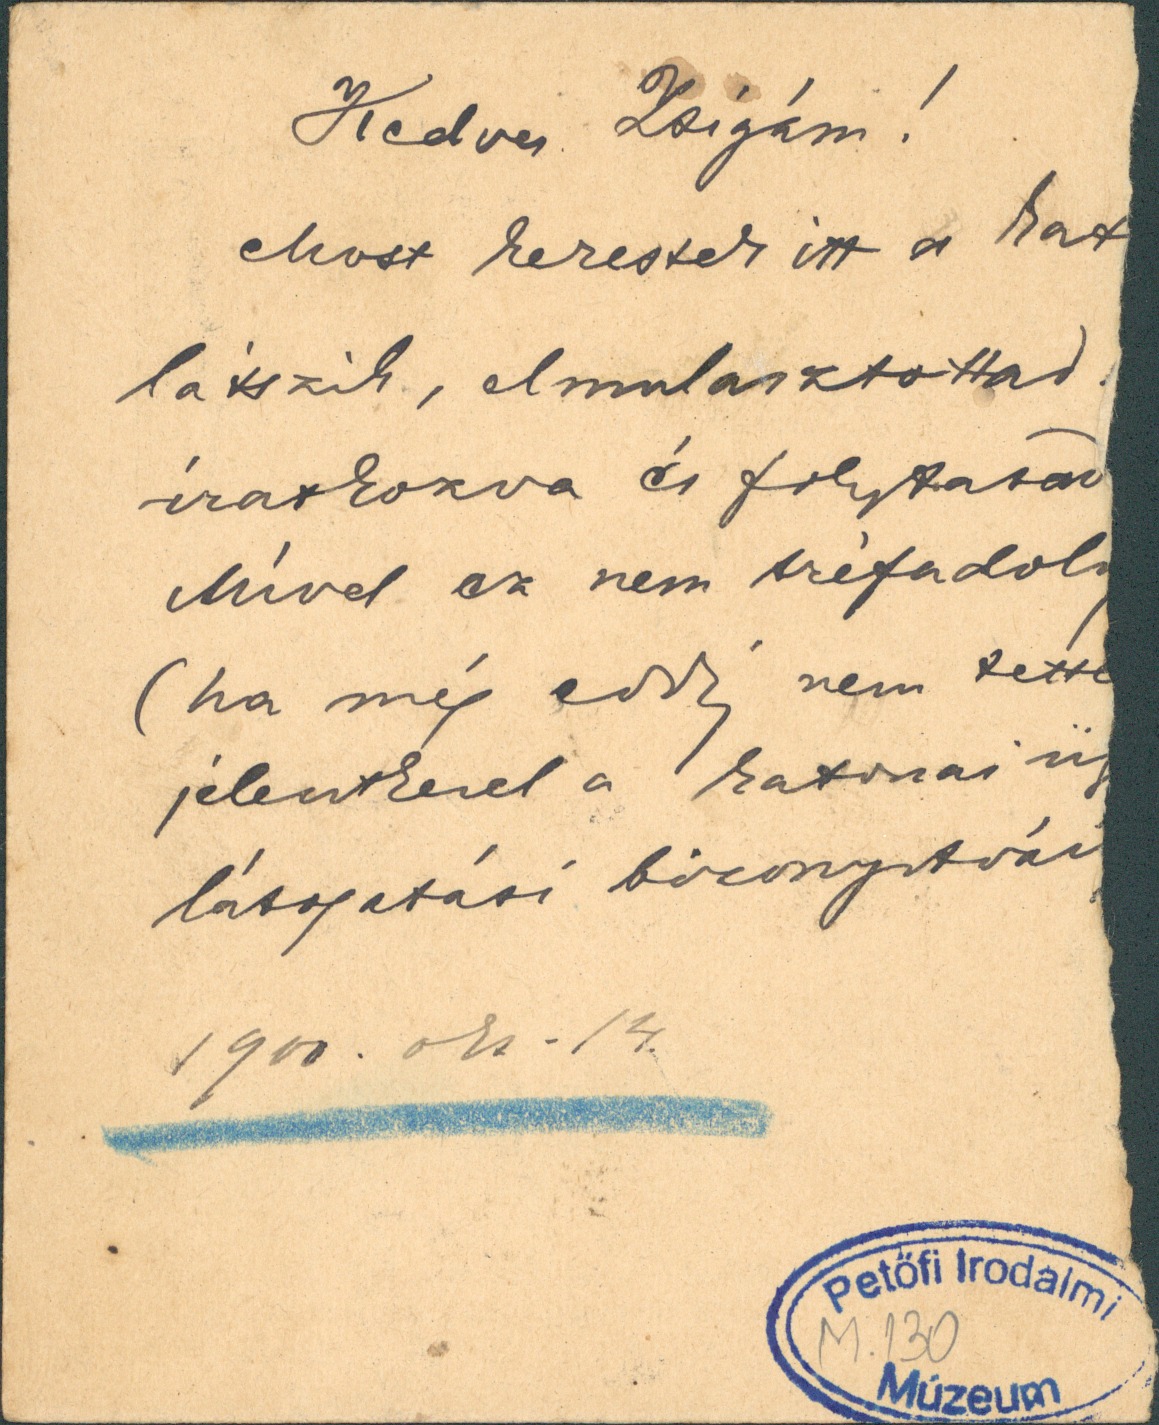 Kedves Zsigám!
Most kerestek itt a kat
látszik, elmulasztottad
iratkozva és folytatód
Mivel ez nem tréfadolo
(ha még eddig nem tette
jelentkezel a katonai üg
látogatási bizonyítvá
1900. okt. 14.
Petőfi Irodalmi
M.130
Múzeum